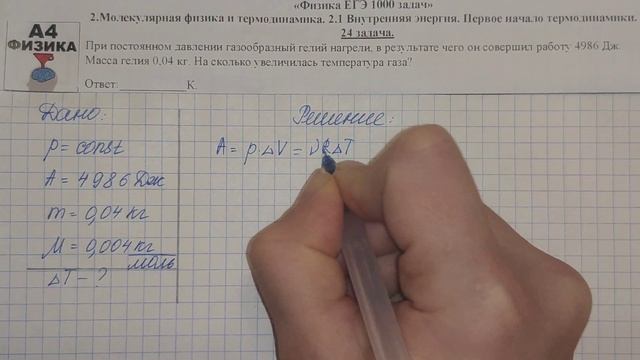 «Физика ЕГЭ 1000 задач»
2.Молекулярная физика и термодинамика. 2.1 Внутренняя энергия. Первое начало термодинамики.
24 задача.
А4
ФИЗИКА
При постоянном давлении газообразный гелий нагрели, в результате чего он совершил работу 4986 Дж.
Масса гелия 0,04 кг. На сколько увеличилась температура газа?
Ответ: К.
Дано:
p = const
A = 4986 Дж
m = 0,04 кг
M = 0,004 кг/моль
ΔT - ?
Решение:
A = p ΔV = νRΔT